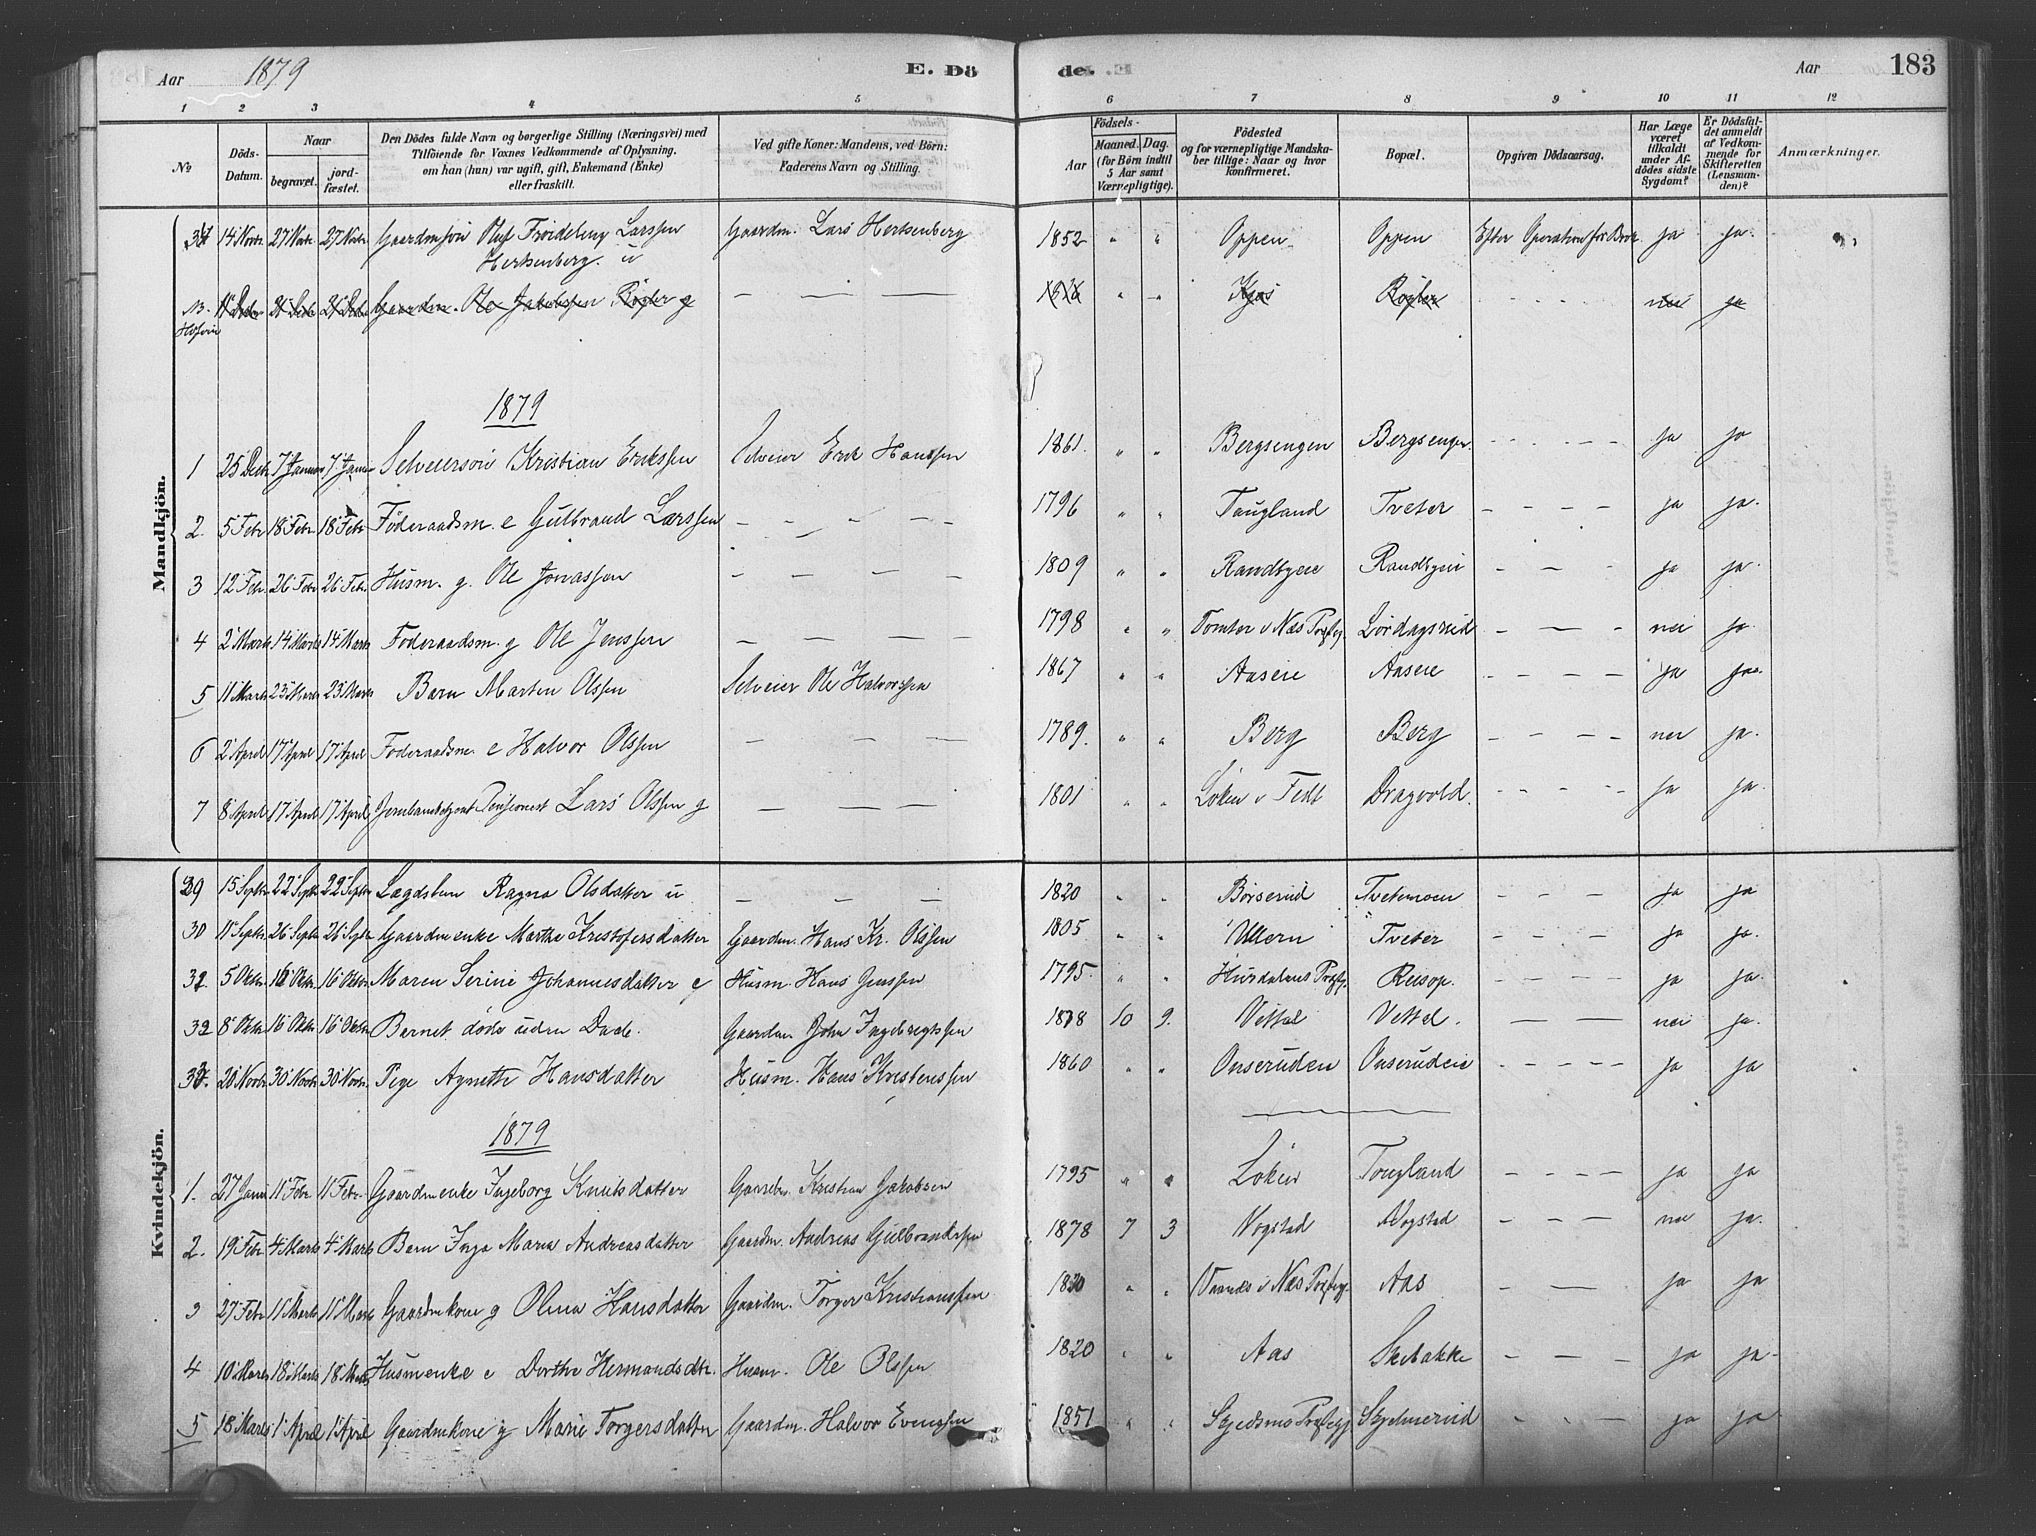 Aar 1879 E. Dö de. Aar 183
1 2 3 4 5 6 7 8 9 10 11 12
No
Döds-Datum.
Naar
begravet.
jord-fæstet.
Den Dödes fulde Navn og borgerlige Stilling (Næringsvei) med
Tilföiende for Voxnes Vedkommende af Oplysning,
om han (hun) var ugift, gift, Enkemand (Enke)
eller fraskilt.
Ved gifte Koner: Mandens, ved Börn:
Faderens Navn og Stilling.
Födsels-
Aar
Maaned. Dag.
(for Börn indtil
5 Aar samt
Værnepligtige).
Födested
og for værnepligtige Mandska-
ber tillige: Naar og hvor
konfirmeret.
Bopæl.
Opgiven Dödsaarsag.
Har Læge
været
tilkaldt
under Af-
dödes sidste
Sygdom?
Er Dödsfal-
det anmeldt
af Vedkom-
mende for
Skifteretten
(Lensman-
den)?
Anmærkninger.
Mandkjön.
14 Novbr 27 Novbr 27 Novbr Gaardmsön Oluf Larssen Gaardm. Lars Hertsenberg 1852 " " Oppen Oppen Efter Operation for Brok ja ja.
Hertsenberg. u
Gaardm. Ole Jakobsen g — — — " " nei ja
1879
1 25 Decb 7 Januar 7 Januar Selveiersön Kristian Erikssen Selveier Erik Hanssen 1861. " " Bergsengen Bergsengen - - - - ja ja
2. 5 Febr 18 Febr 18 Febr Föderaadsm. e Gulbrand Larssen - - - - 1796 " " Taugland Tveter - - - - ja ja.
3 12 Febr. 26 Febr 26 Febr. Husm. g. Ole Jonassen - - - - 1809 " " Randbyeie Randbyeie - - - ja ja.
4 2 Marts 14 Marts 14 Marts Föderaadsm. g Ole Jenssen — — — — 1798 " " Tomter i Næs Præstegj. Lördagsrud - — - nei ja
5 11 Marts 23 Marts 23 Marts Barn Marten Olssen Selveier Ole Halvorssen 1867 " " Aaseie Aaseie - - - - ja ja.
6 2 April 17 April 17 April Föderaadsm. e Halvor Olssen — — — 1789. " " Berg Berg - - - - nei ja.
7 8 April 17 April 17 April Pensionist Lars Olssen g — — — 1801 " " Löken i Fedt Dragvold. - - - - ja ja.
Kvindekjön.
29 15 Septbr 22 Septbr 22 Septbr Lægdslem Ragna Olsdatter u. — — — 1820 " " Börserud Tvetemoen - - - ja ja
30 11 Septbr. 26 Septbr 26 Septbr Gaardmenke Marthe Kristofersdatter Gaardm. Hans Kr. Olssen 1805 " " Ullern Tveter - - - - ja ja.
31 5 Oktbr 16 Oktbr. 16 Oktbr. Maren Serine Johannesdatter g Husm. Hans Jenssen 1795. " " Hurdalens Præstegj. Reisop. - - - ja ja.
32 8 Oktbr 16 Oktbr 16 Oktbr Barnet döde uden Daab. Gaardm John Ingebregtssen 1878 10 9. Vettal Vettal. — — nei ja.
33. 20 Novbr 30 Novbr 30 Novbr. Pige Agnethe Hansdatter Husm. Hans Kristenssen 1860 " " Onseruden Onserudeie - - - - ja ja
1879
1. 27 Janu 11 Febr. 11 Febr. Gaardmenke Ingeborg Knudsdatter Gaardm. Kristian Jakobsen 1795 " " Löken Tougland - - - - ja ja
2. 19 Febr 4 Marts 4 Marts Barn Inga Maria Andreasdatter Gaardm. Andreas Gulbrandssen 1878 7 3 Nogstad Nogstad - - - - nei ja.
3 27 Febr 11 Marts 11 Marts Gaardmkone g Olina Hansdatter Gaardm. Torger Kristianssen 1820 " " i Næs Præstegj. Aas - — ja ja
4 10 Marts 18 Marts 18 Marts Husmenke e Dorthe Hermandsdtr. Husm. Ole Olssen 1820 " " Aas Skibakke - - - - ja ja
5 18 Marts 1 April 1 April Gaardmkone g Marie Torgersdatter Gaardm. Halvor Evenssen 1851 " " Skjedsmo Præstegj Skjelmerud - - - ja ja